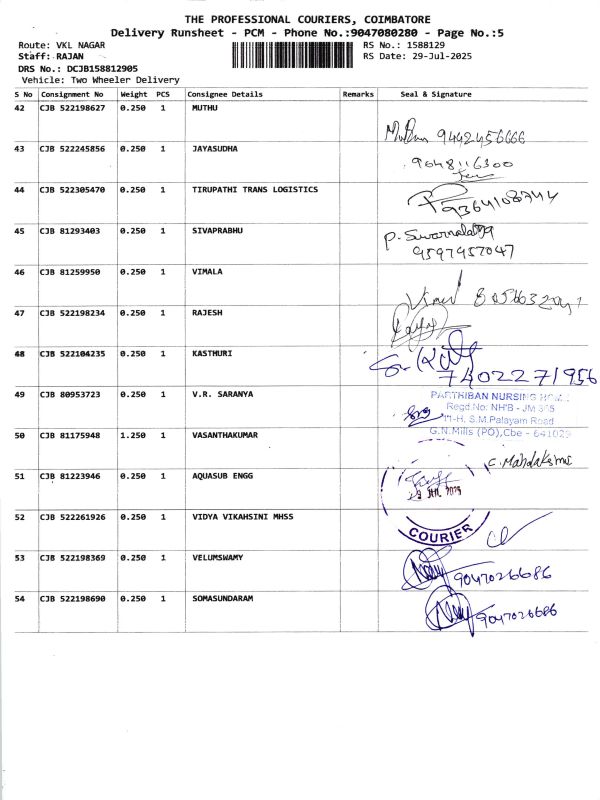 THE PROFESSIONAL COURIERS, COIMBATORE
Delivery Runsheet - PCM - Phone No.:9047080280 - Page No.:5
Route: VKL NAGAR
RS No.: 1588129
Staff: RAJAN
RS Date: 29-Jul-2025
DRS No.: DCJB158812905
Vehicle: Two Wheeler Delivery
S No Consignment No Weight PCS Consignee Details Remarks Seal & Signature
42 CJB 522198627 0.250 1 MUTHU
9442456666
43 CJB 522245856 0.250 1 JAYASUDHA
9048116300
44 CJB 522305470 0.250 1 TIRUPATHI TRANS LOGISTICS
9364108744
45 CJB 81293403 0.250 1 SIVAPRABHU
P. Swarnalatha
9597957047
46 CJB 81259950 0.250 1 VIMALA
47 CJB 522198234 0.250 1 RAJESH
48 CJB 522104235 0.250 1 KASTHURI
7402271956
49 CJB 80953723 0.250 1 V.R. SARANYA
PARTHIBAN NURSING HOME
Regd.No: NHB - JM 365
11-H, S.M.Palayam Road
G.N.Mills (PO),Cbe - 641029
50 CJB 81175948 1.250 1 VASANTHAKUMAR
C. Mahalakshmi
51 CJB 81223946 0.250 1 AQUASUB ENGG
JUL 2025
52 CJB 522261926 0.250 1 VIDYA VIKAHSINI MHSS
COURIER
53 CJB 522198369 0.250 1 VELUMSWAMY
9047026686
54 CJB 522198690 0.250 1 SOMASUNDARAM
9047026686